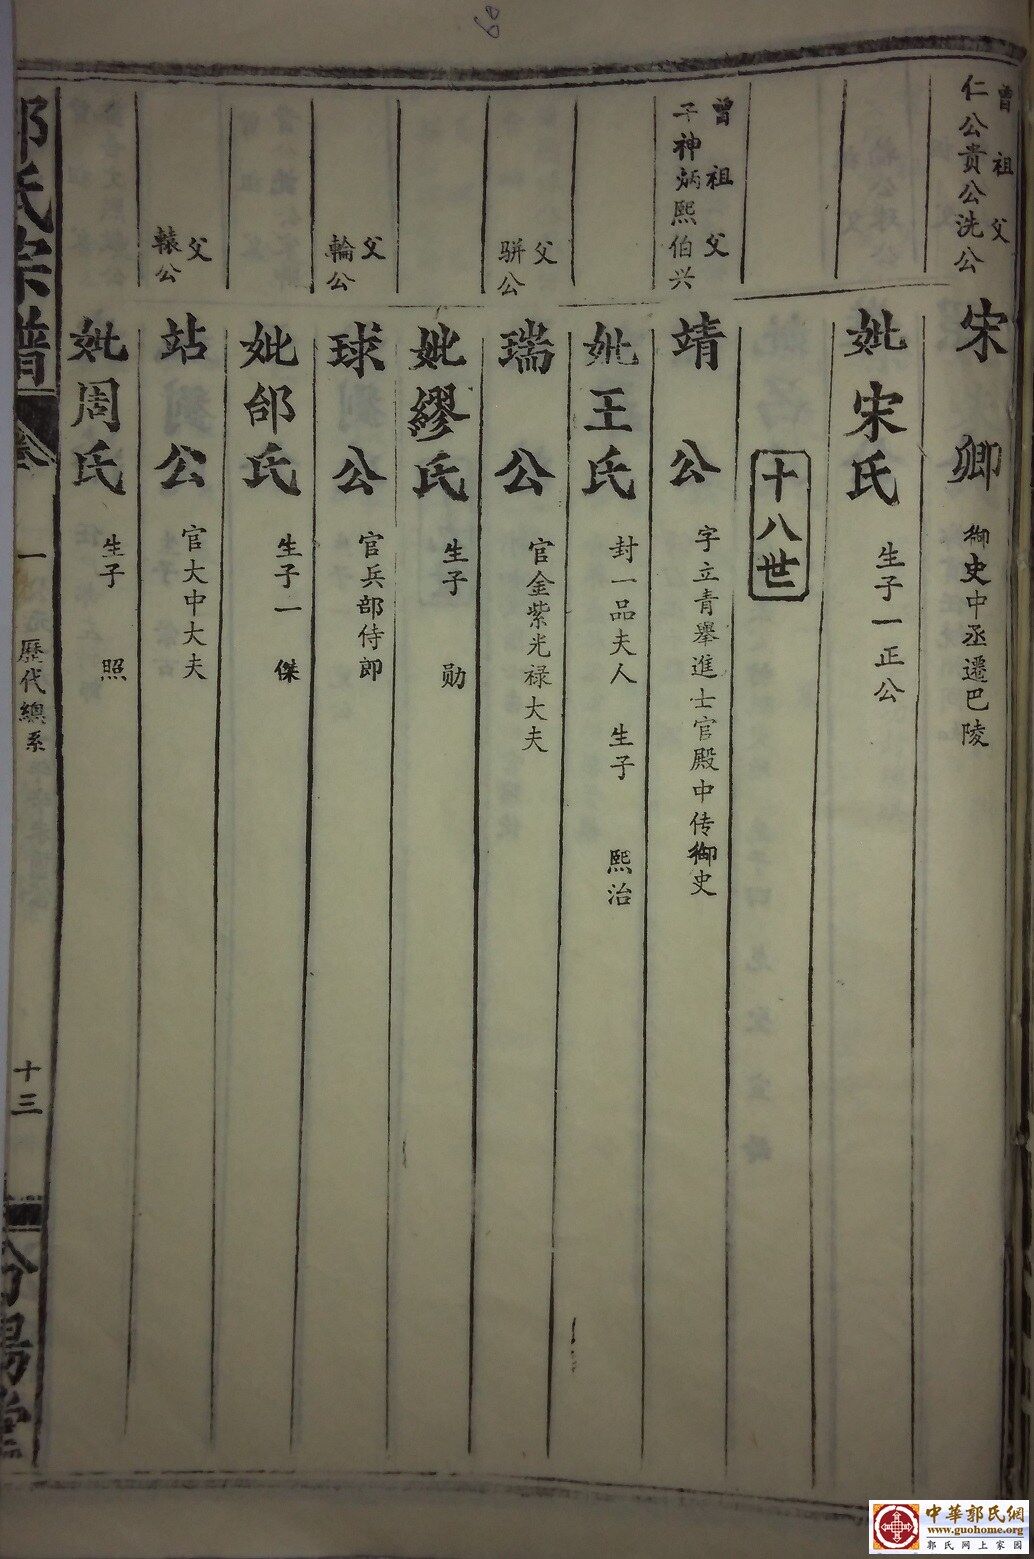 曾祖父
仁公贵公洗公
宋卿 御史中丞遷巴陵
妣宋氏 生子一正公
十八世
曾祖父
子神炳熙伯兴
靖公 字立青舉進士官殿中侍御史
妣王氏 封一品夫人 生子 熙治
父
骈公
瑞公 官金紫光禄大夫
妣繆氏 生子 勋
父
輪公
球公 官兵部侍郎
妣邰氏 生子一 傑
父
轅公
站公 官大中大夫
妣周氏 生子 照
郭氏宗譜
卷一 歷代總系
十三
汾陽堂
中華郭氏網
www.guohome.org
郭氏网上家园